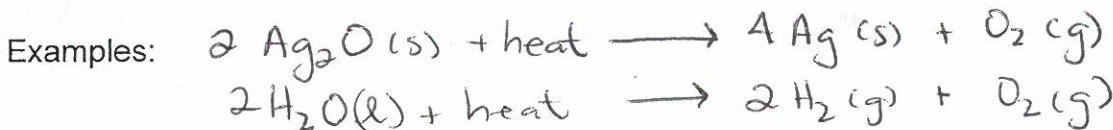 Examples: 2 Ag₂O (s) + heat ⟶ 4 Ag (s) + O₂ (g)
2H₂O(l) + heat ⟶ 2 H₂ (g) + O₂ (g)